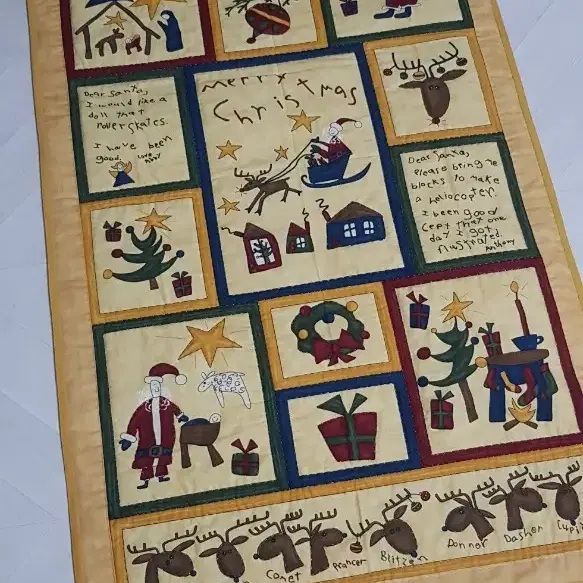 Dear Santa,
I would like a
doll that
Rollerskates.
I have been
good.
Merry xtmas
Christmas
Dear Santa,
Please bring me
blocks to make
a helocopter.
I been good
cept that one
day I got
flustrated.
Anthony
Comet
Prancer
Blitzen
Donner
Dasher
Cupi